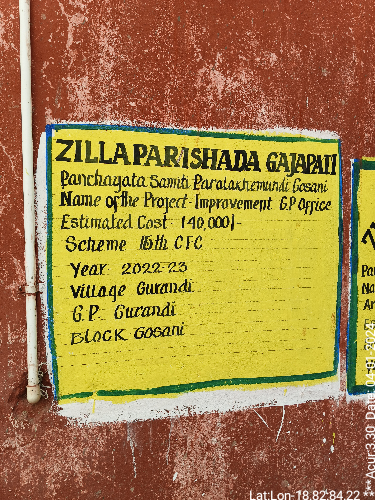 ZILLA PARISHADA GAJAPATI
Panchayata Samiti-Paralakhemundi Gosani
Name of the Project-Improvement G.P Office
Estimated Cost 140,000/-
Scheme 15th CFC
Year 2022-23
Village Gurandi
G.P. Gurandi
BLOCK GOSANI
Pa
Na
Lat:Lon-18.82:84.22 **
**Acur:3.30 Date:06-01-2024